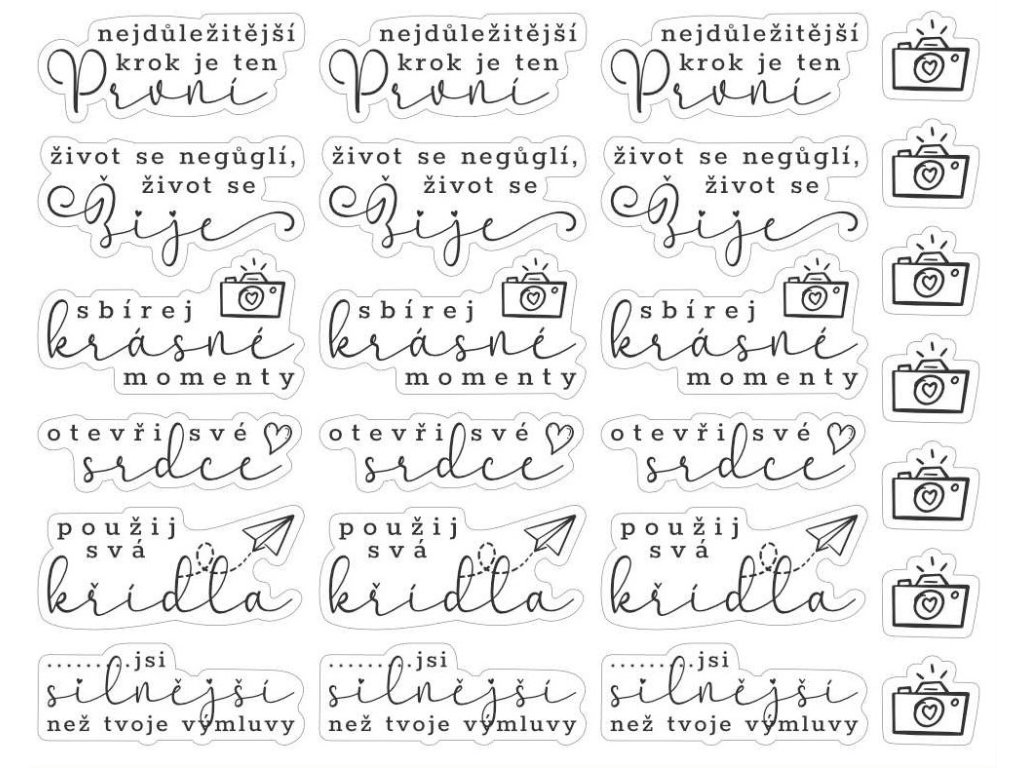 nejdůležitější
krok je ten
První
nejdůležitější
krok je ten
První
nejdůležitější
krok je ten
První
život se negůglí,
život se
Žije
život se negůglí,
život se
Žije
život se negůglí,
život se
Žije
sbírej
krásné
momenty
sbírej
krásné
momenty
sbírej
krásné
momenty
otevři své
srdce
otevři své
srdce
otevři své
srdce
použij
svá
křídla
použij
svá
křídla
použij
svá
křídla
........jsi
silnější
než tvoje výmluvy
........jsi
silnější
než tvoje výmluvy
........jsi
silnější
než tvoje výmluvy